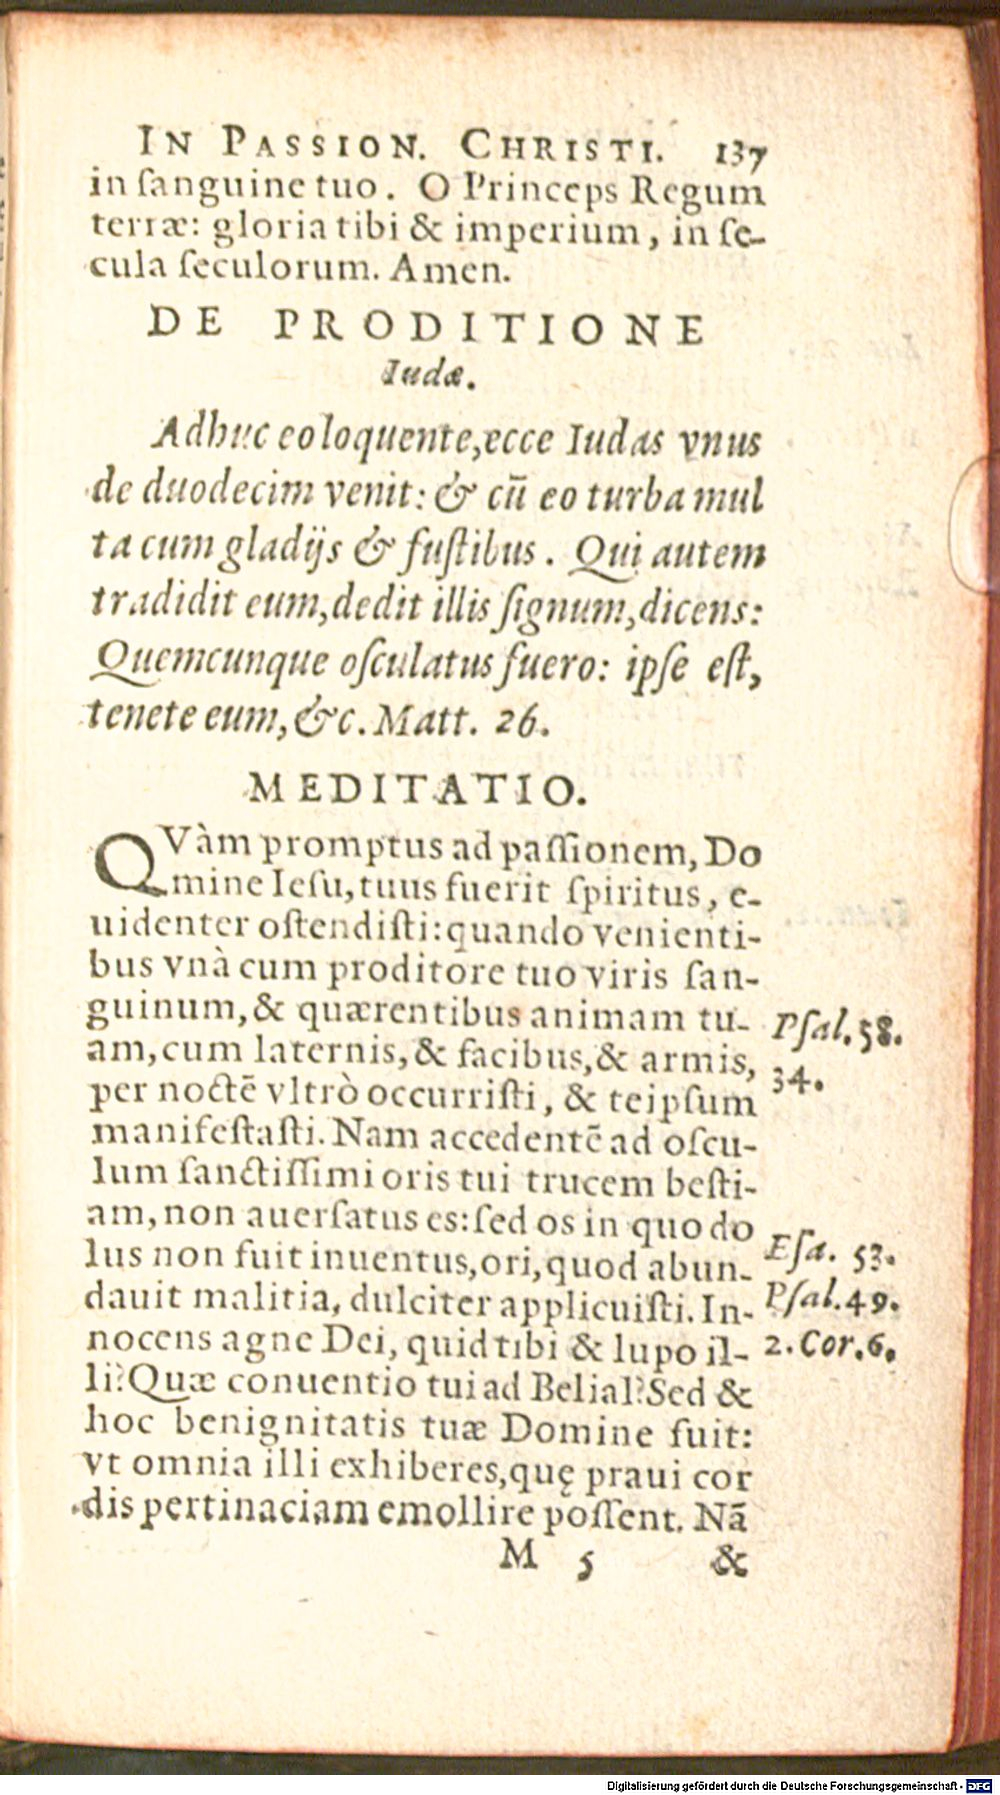 IN PASSION. CHRISTI. 137
in sanguine tuo. O Princeps Regum
terræ: gloria tibi & imperium, in se-
cula seculorum. Amen.
DE PRODITIONE
Iudæ.
Adhuc eo loquente, ecce Iudas vnus
de duodecim venit: & cū eo turba mul
ta cum gladijs & fustibus. Qui autem
tradidit eum, dedit illis signum, dicens:
Quemcunque osculatus fuero: ipse est,
tenete eum, &c. Matt. 26.
MEDITATIO.
QVàm promptus ad passionem, Do
mine Iesu, tuus fuerit spiritus, e-
uidenter ostendisti: quando venienti-
bus vnà cum proditore tuo viris san-
guinum, & quærentibus animam tu- Psal. 58.
am, cum laternis, & facibus, & armis, 34.
per noctē vltrò occurristi, & teipsum
manifestasti. Nam accedentē ad oscu-
lum sanctissimi oris tui trucem besti-
am, non auersatus es: sed os in quo do
lus non fuit inuentus, ori, quod abun- Esa. 53.
dauit malitia, dulciter applicuisti. In- Psal. 49.
nocens agne Dei, quid tibi & lupo il- 2. Cor. 6.
li? Quæ conuentio tui ad Belial? Sed &
hoc benignitatis tuæ Domine fuit:
vt omnia illi exhiberes, quę praui cor
dis pertinaciam emollire possent. Nā
M 5 &
Digitalisierung gefördert durch die Deutsche Forschungsgemeinschaft - DFG